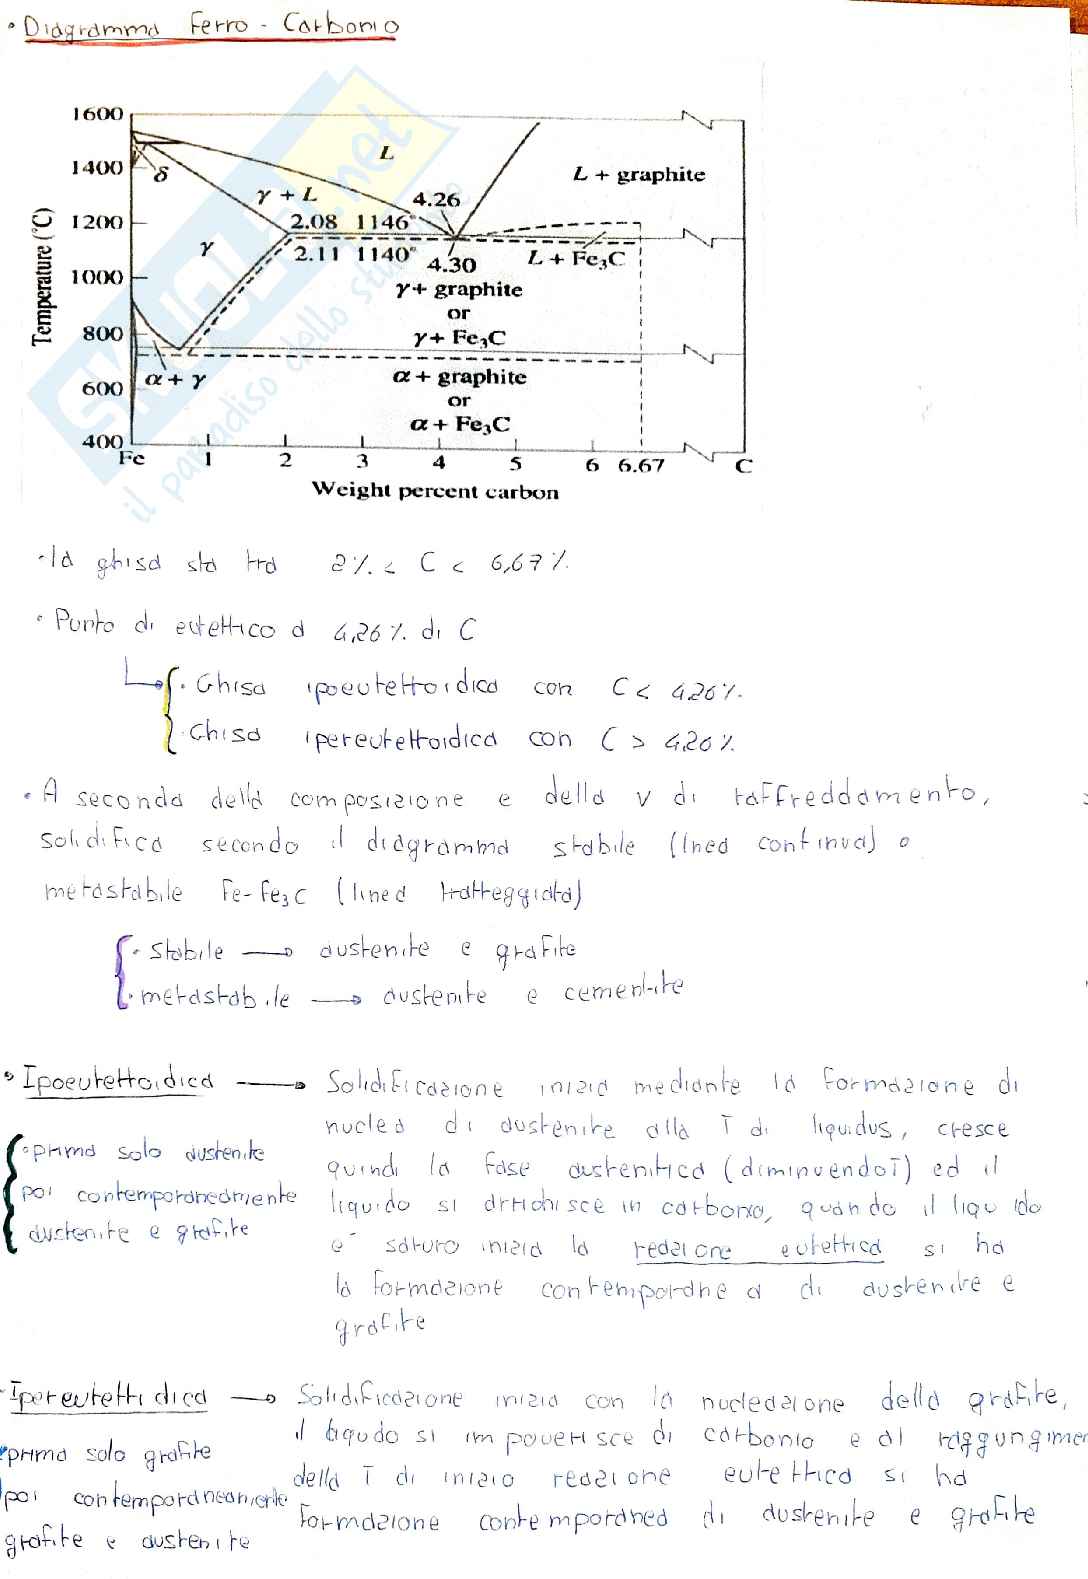 • Diagramma Ferro - Carbonio
1600
1400
1200
1000
800
600
400
Temperature (°C)
δ
L
L + graphite
γ + L
4.26
2.08 1146°
γ
2.11 1140°
4.30
L + Fe₃C
γ + graphite
or
γ + Fe₃C
α + γ
α + graphite
or
α + Fe₃C
Fe 1 2 3 4 5 6 6.67 C
Weight percent carbon
SKUOLA.net
il paradiso dello studente
• la ghisa sta tra 2% < C < 6,67%
• Punto di eutettico a 4,26% di C
• Ghisa ipoeutettoidica con C < 4,26%
• Ghisa ipereutettoidica con C > 4,26%
• A seconda della composizione e della v di raffreddamento,
solidifica secondo il diagramma stabile (linea continua) o
metastabile Fe-Fe₃C (linea tratteggiata)
• Stabile → austenite e grafite
• metastabile → austenite e cementite
• Ipoeutettoidica → Solidificazione inizia mediante la formazione di
nuclea di austenite alla T di liquidus, cresce
quindi la fase austenitica (diminuendo T) ed il
liquido si arrichisce in carbonio, quando il liquido
e' saturo inizia la reazione eutettica si ha
la formazione contemporanea di austenite e
grafite
• prima solo austenite
poi contemporaneamente
austenite e grafite
• Ipereutettidica → Solidificazione inizia con la nucleazione della grafite,
il liquido si impoverisce di carbonio e al raggungimen
della T di inizio reazione eutettica si ha
formazione contemporanea di austenite e grafite
prima solo grafite
poi contemporaneamente
grafite e austenite